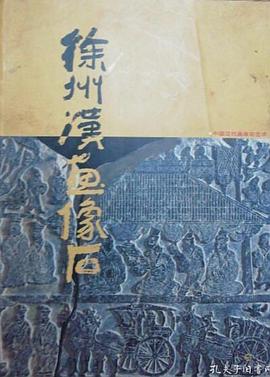 徐州漢畫像石
中国汉代画像石艺术
孔夫子旧书网